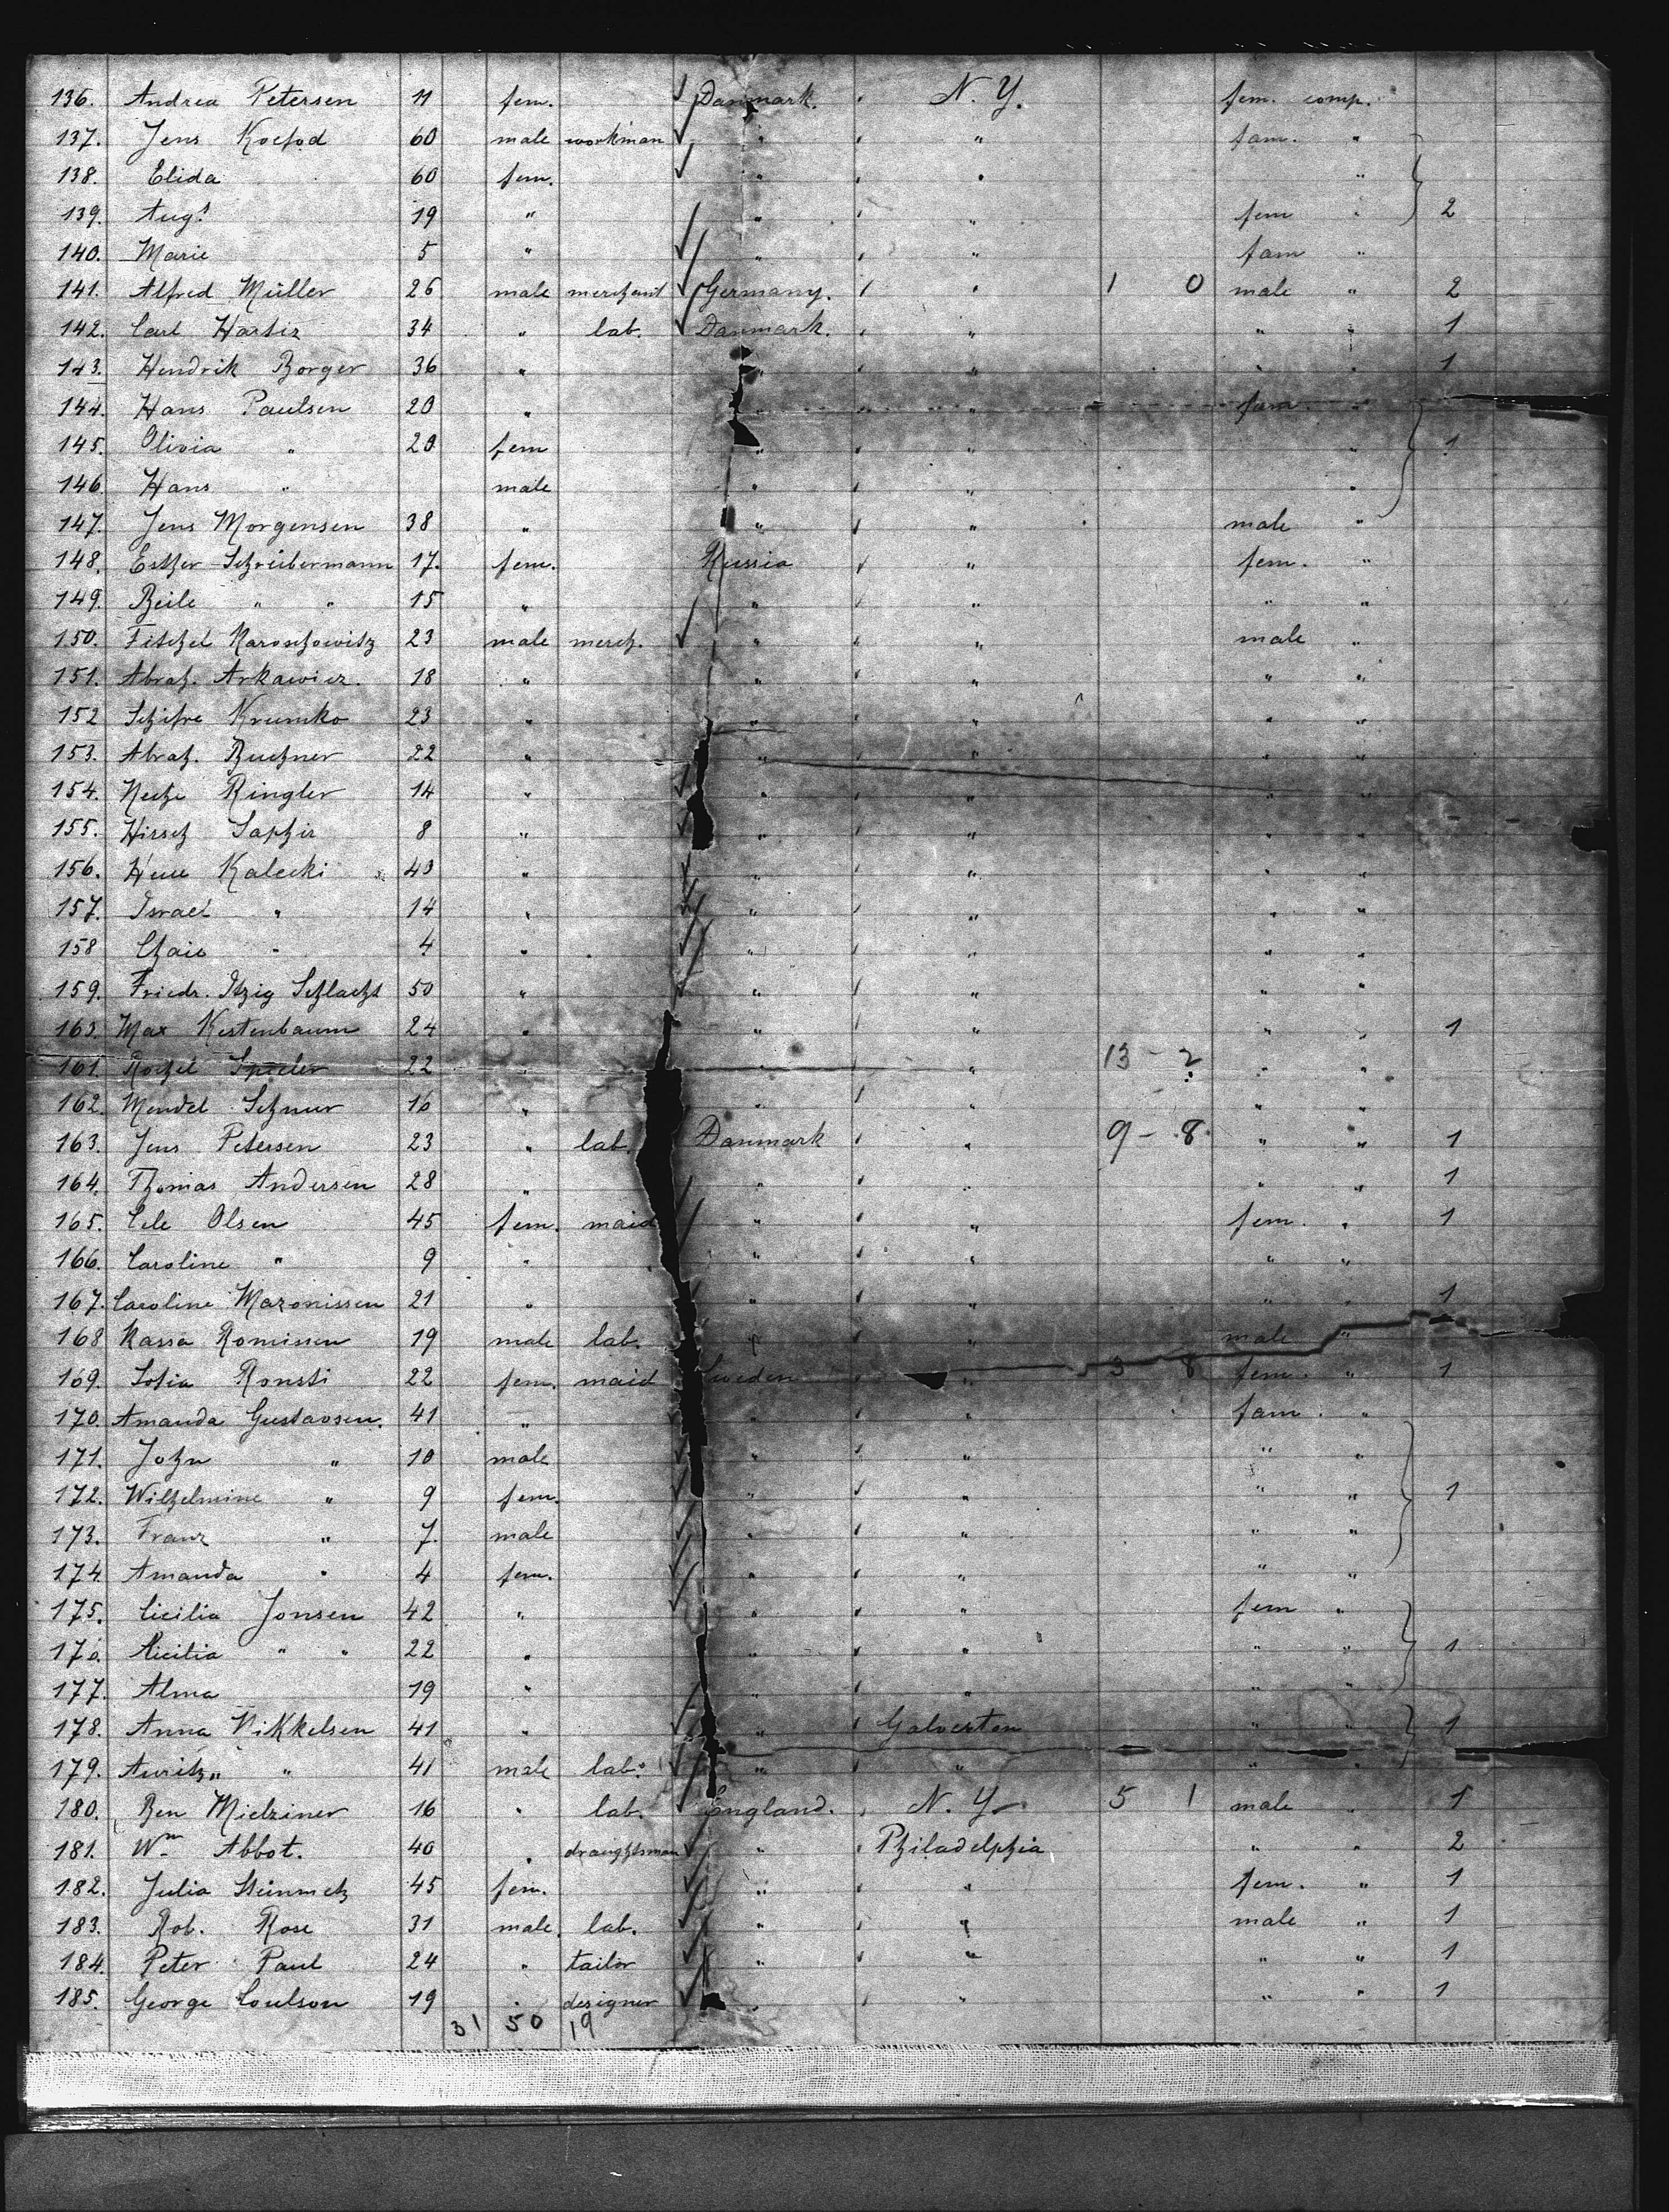 136. Andrea Petersen 11 fem. Danmark. " N. Y. fem. comp.
137. Jens Koefod 60 male workman " " " fam. "
138. Elida 60 fem. " " " "
139. Augs 19 " " " " fem " 2
140. Marie 5 " " " " fam "
141. Alfred Müller 26 male merchant Germany. " " 1 0 male " 2
142. Carl Hartiz 34 " lab. Danmark. " " " " 1
143. Hendrik Borger 36 " " " " " " 1
144. Hans Paulsen 20 " " " " fam. "
145. Olivia " 20 fem " " " " 1
146. Hans " male " " " "
147. Jens Morgensen 38 " " " " male "
148. Esther Schreibermann 17. fem. Russia " " fem. "
149. Beile " " 15 " " " " " "
150. Fischel Maroschowitz 23 male merch. " " " male "
151. Abrah. Arkawicz. 18 " " " " " "
152 Schifre Krumko 23 " " " " " "
153. Abrah. Buchner 22 " " " " " "
154. Neche Ringler 14 " " " " " "
155. Hirsch Saphir 8 " " " " " "
156. Kalecki 43 " " " " " "
157. Israel " 14 " " " " " "
158 Chaie " 4 " " " " " "
159. Friedr. Itzig Schlacht 50 " " " " " "
163. Max Kestenbaum 24 " " " " " " 1
161. Rochel 22 " " " 13 - 2 " "
162. Mendel Schnur 16 " " " " " "
163. Jens Petersen 23 " lab. Danmark " " 9 - 8 " " 1
164. Thomas Andersen 28 " " " " " " 1
165. Cele Olsen 45 fem. maid " " " fem. " 1
166. Caroline " 9 " " " " " "
167. Caroline Mazonissen 21 " " " " " " 1
168 Kassa Romissen 19 male lab. " " " male "
169. Sofia Ronsti 22 fem. maid Sweden " " 3 8 fem. " 1
170. Amanda Gustavsen. 41 " " " " fam. "
171. John " 10 male " " " " "
172. Wilhelmine " 9 fem. " " " " " 1
173. Franz " 7. male " " " " "
174 Amanda " 4 fem. " " " " "
175. Cicilia Jonsen 42 " " " " fem "
176. Cicilia " " 22 " " " " " " 1
177. Alma 19 " " " " " "
178. Anna Nikkelsen 41 " " " Galverton " " 1
179. Auritz " " 41 male lab. " " " " "
180. Ben Mielziner 16 " lab. England. " N. Y. 5 1 male " 1
181. Wm Abbot. 40 " draughtsman " " Philadelphia " " 2
182. Julia Steinmetz 45 fem. " " " fem. " 1
183. Rob. Rose 31 male lab. " " " male " 1
184. Peter Paul 24 " tailor " " " " " 1
185. George Coulson 19 " designer " " " " " 1
31 50 19